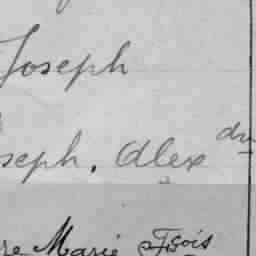 Joseph
seph. Alex dre
re Marie Fsois